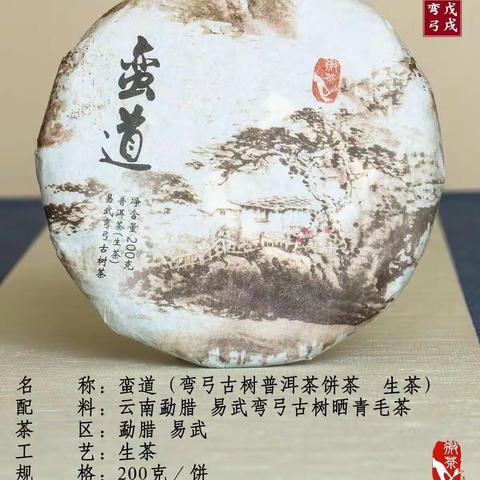 弯弓
戊戌
蛮道
净含量200克
普洱茶(生茶)
易武弯弓古树茶
名 称：蛮道（弯弓古树普洱茶饼茶 生茶）
配 料：云南勐腊 易武弯弓古树晒青毛茶
茶 区：勐腊 易武
工 艺：生茶
规 格：200克／饼